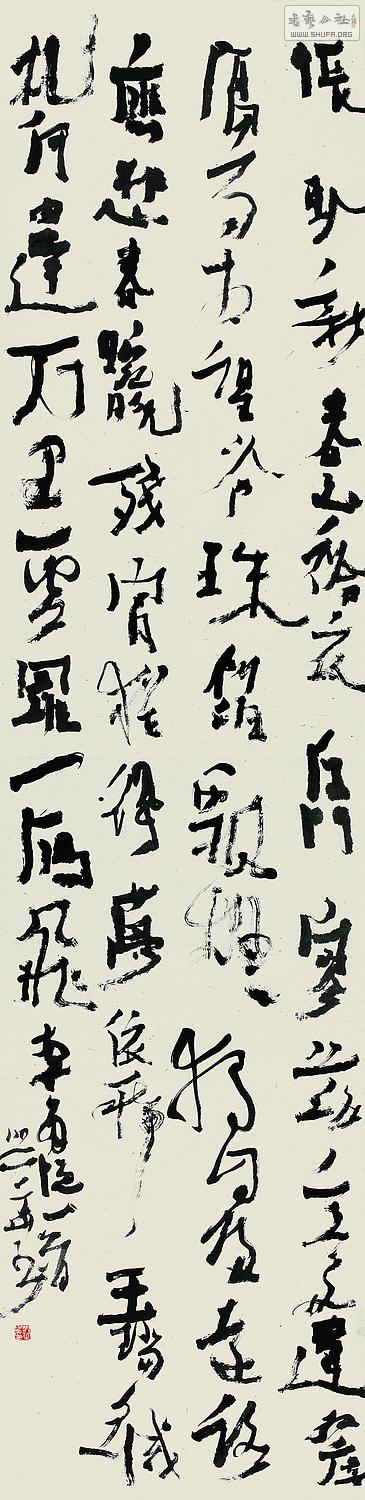 書藝公社
WWW.SHUFA.ORG
悵臥新春白袷衣白門寥落意多違紅樓
隔雨相望冷珠箔飄燈獨自歸遠路
應悲春晼晚殘宵猶得夢依稀玉璫緘
札何由達万里雲羅一雁飛李商隱一首